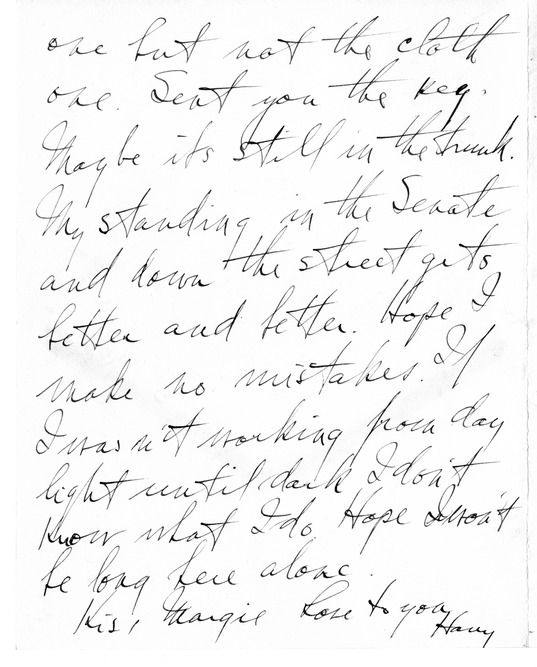 one but not the cloth
one. Sent you the key.
Maybe its still in the trunk.
My standing in the Senate
and down the street gets
better and better. Hope I
make no mistakes. If
I wasn't working from day
light until dark I don't
know what I do Hope I won't
be long here alone.
Kiss Margie Love to you
Harry